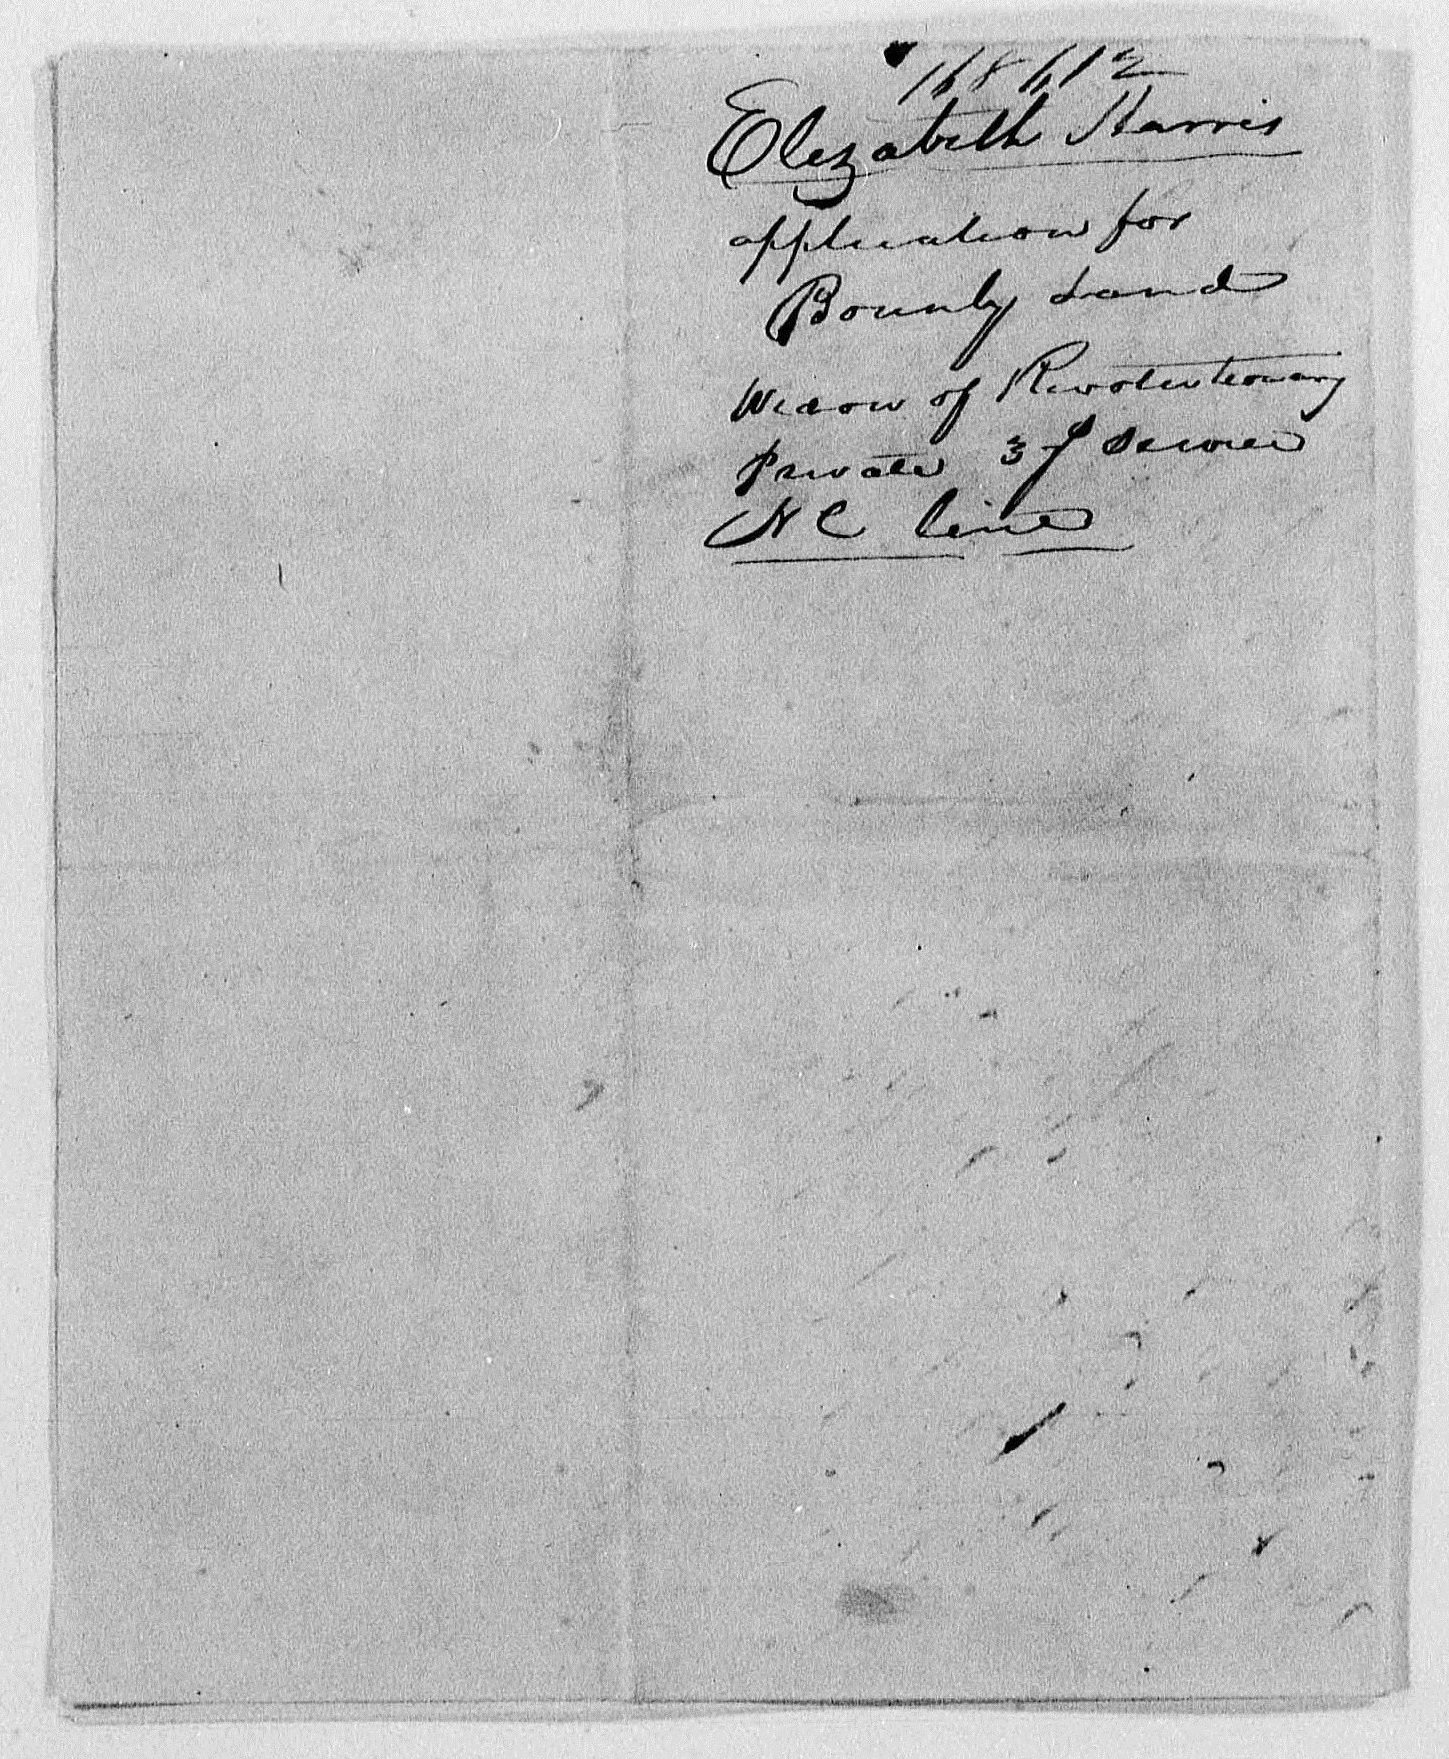 168612
Elizabeth Harris
application for
Bounty Land
Widow of Revolutionary
Private 3 y Service
N C line